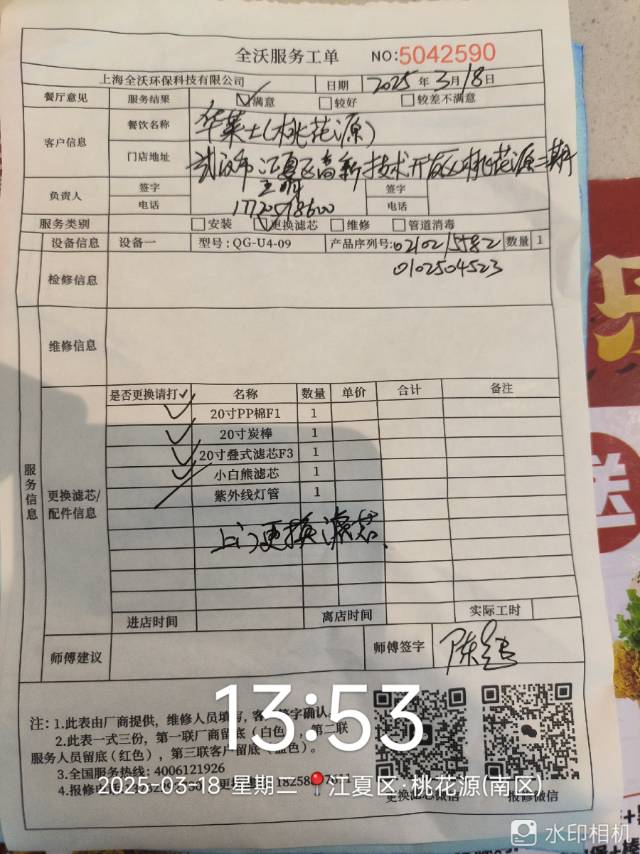 全沃服务工单 NO:5042590
上海全沃环保科技有限公司 日期 2025年3月18日
餐厅意见 服务结果 满意 较好 较差不满意
客户信息 餐饮名称 华莱士(桃花源)
门店地址 武汉市江夏区高新技术开发区桃花源二期
负责人 签字 签字
电话 电话
服务类别 安装 更换滤芯 维修 管道消毒
设备信息 设备一 型号:QG-U4-09 产品序列号: 数量 1
0102504523
检修信息
维修信息
服务信息
更换滤芯/配件信息
是否更换请打✓ 名称 数量 单价 合计 备注
✓ 20寸PP棉F1 1
✓ 20寸炭棒 1
✓ 20寸叠式滤芯F3 1
✓ 小白熊滤芯 1
紫外线灯管 1
上门更换滤芯.
进店时间 离店时间 实际工时
师傅建议 师傅签字
注:1.此表由厂商提供,维修人员填写,客户签字确认。
2.此表一式三份,第一联厂商留底(白色),第二联
服务人员留底(红色),第三联客户留底(蓝色)。
3.全国服务热线:4006121926
4.报修电话
更换滤芯微信 报修微信
13:53
2025-03-18 星期二 江夏区·桃花源(南区)
水印相机
送